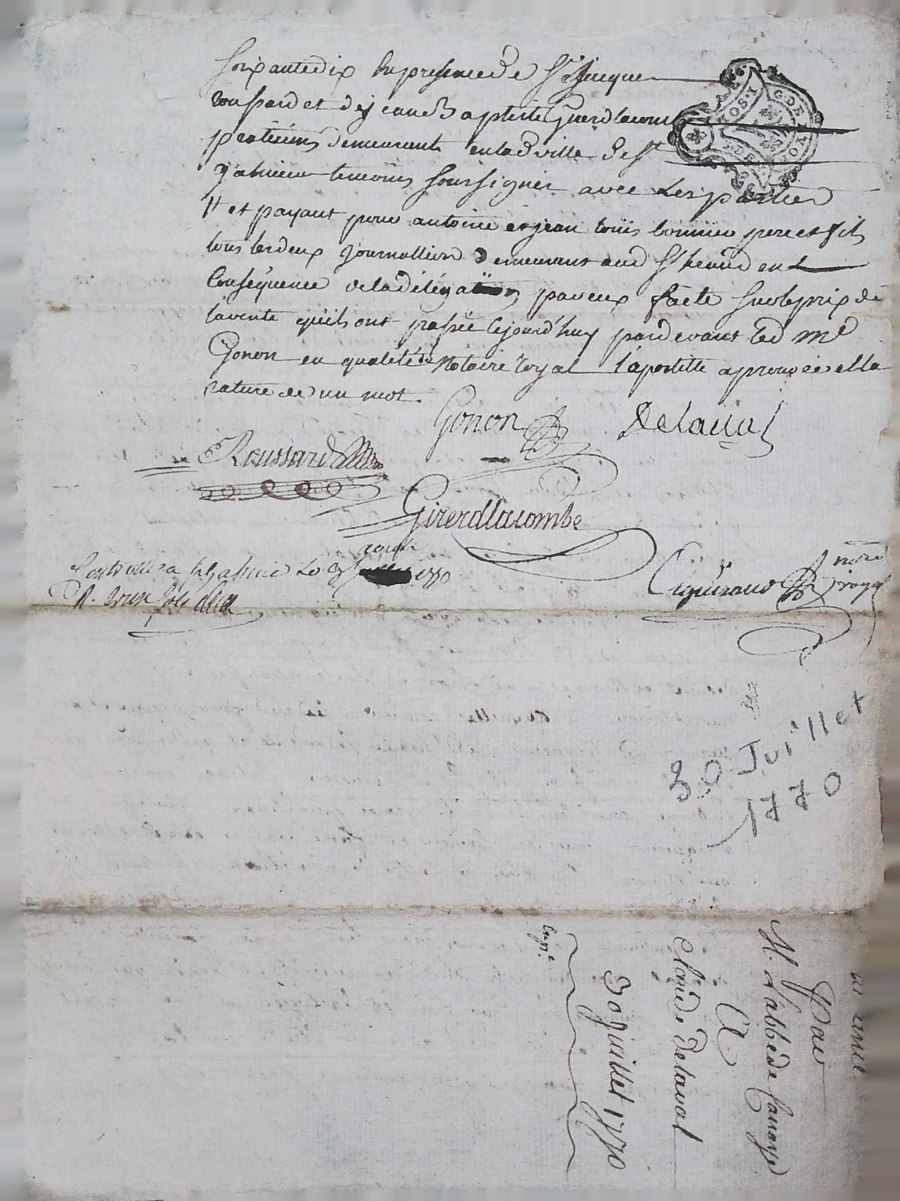 soixante dix En presence de Sr Jacque
roussard et de jean Baptiste Girerdlacombe
praticiens demeurent en lad ville de St
temoins soussignés avec Les parties
# et payant pour antoine et jean louis bonnier pere et fils
tous les deux journallier demeurans aud St heand en
Conséquence de la délégation par eux faite sur le prix de
la vente qu'ils ont passée cejourd'huy pardevant led me
Gonon en qualité de Notaire royal l'apostille approuvée et la
rature de un mot.
Gonon Delaval
Roussard
Girerdlacombe
1770
nore
royal
30 Juillet
1770
Par
M. L'abbé de
A
Claude Delaval
30 juillet 1770
exp.